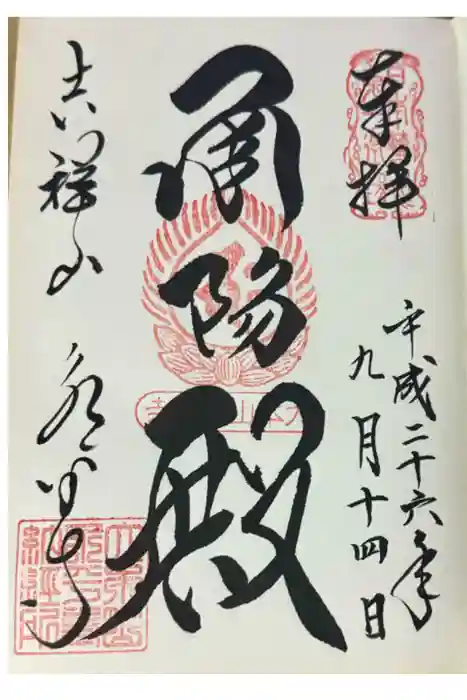 奉拝
平成二十六年
九月十四日
承陽殿
吉祥山 永平寺